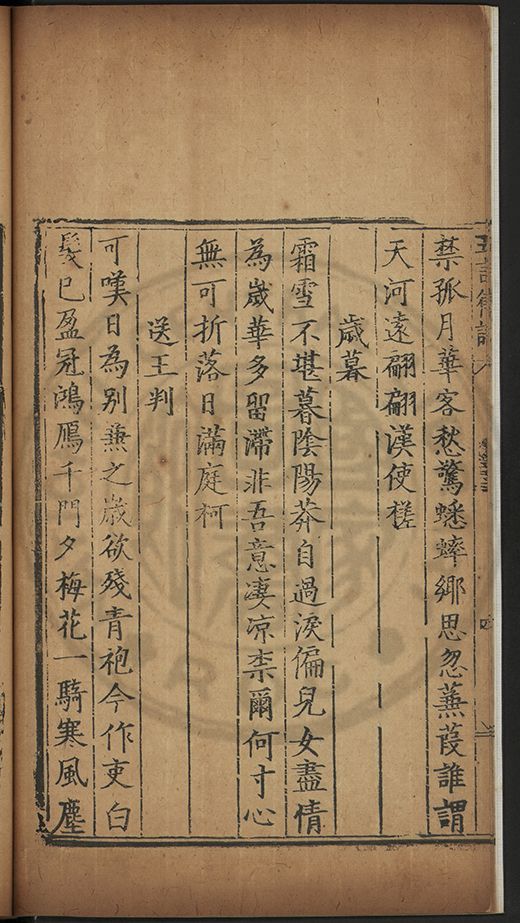 禁孤月華客愁驚蟋蟀鄉思忽蒹葭誰謂
天河遠翩翩漢使槎
歲暮
霜雪不堪暮陰陽莽自過淚偏兒女盡情
為歲華多留滯非吾意凄凉柰爾何寸心
無可折落日滿庭柯
送王判
可嘆日為別兼之歲欲殘青袍今作吏白
髮已盈冠鴻鴈千門夕梅花一騎寒風塵